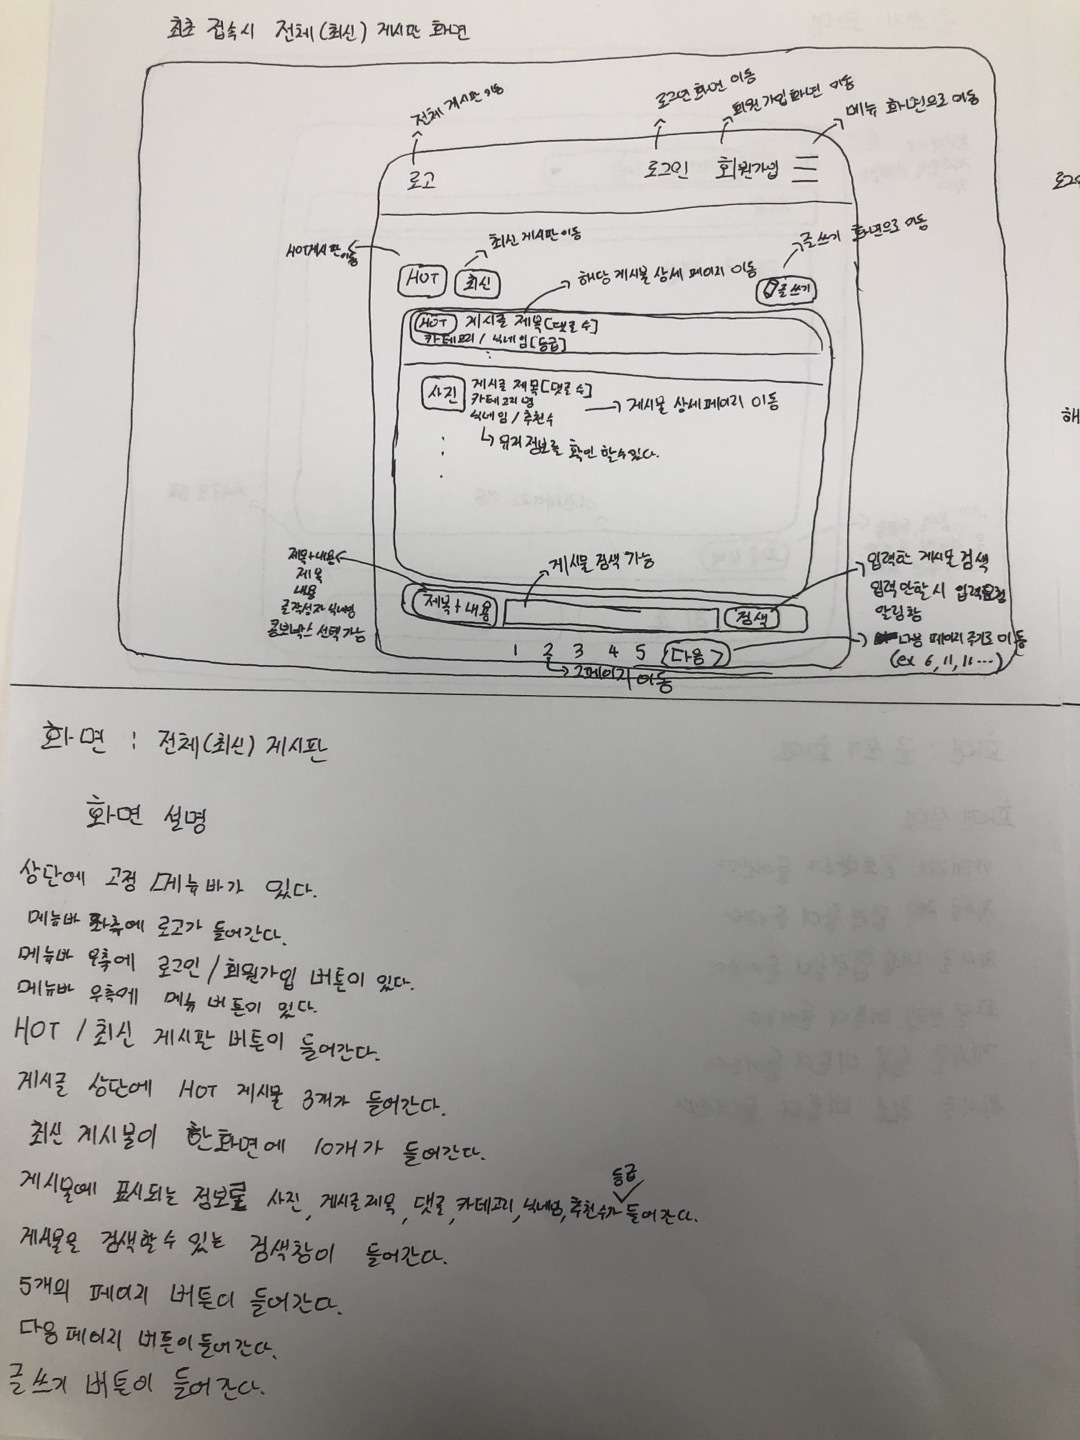 최초 접속시 전체(최신) 게시판 화면
전체 게시판 이동
로그인 화면 이동
회원가입 화면 이동
메뉴 화면으로 이동
로고
로그인 회원가입
HOT게시판 이동
최신 게시판 이동
글쓰기 화면으로 이동
HOT 최신
해당 게시물 상세 페이지 이동
글쓰기
HOT 게시글 제목[댓글수]
카테고리 / 닉네임[등급]
사진 게시글 제목[댓글수]
카테고리명
→ 게시물 상세페이지 이동
닉네임 / 추천수
↳ 뮤지 정보를 확인 할수있다.
제목+내용
제목
내용
글작성자 닉네임
콤보박스 선택 가능
게시물 검색 가능
입력한 게시물 검색
입력 안할 시 입력요청
알림창
제목+내용 검색
1 2 3 4 5 다음 >
다음 페이지 주기로 이동
(ex 6, 11, 16 ···)
2페이지 이동
로그인
해
화면 : 전체(최신) 게시판
화면 설명
상단에 고정 메뉴바가 있다.
메뉴바 좌측에 로고가 들어간다.
메뉴바 우측에 로그인 / 회원가입 버튼이 있다.
메뉴바 우측에 메뉴 버튼이 있다.
HOT / 최신 게시판 버튼이 들어간다.
게시글 상단에 HOT 게시물 3개가 들어간다.
최신 게시물이 한화면에 10개가 들어간다.
등급
게시물에 표시되는 정보로 사진, 게시글제목, 댓글, 카테고리, 닉네임, 추천수가 들어간다.
게시물을 검색할 수 있는 검색창이 들어간다.
5개의 페이지 버튼이 들어간다.
다음 페이지 버튼이 들어간다.
글쓰기 버튼이 들어간다.